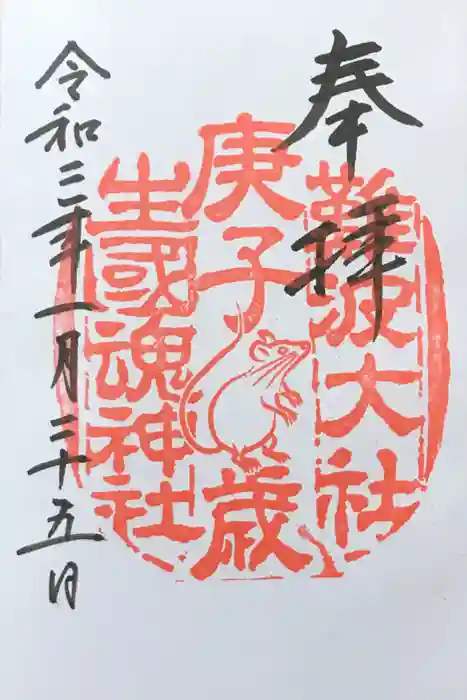 奉拝
難波大社
庚子歳
生國魂神社
令和二年一月二十五日